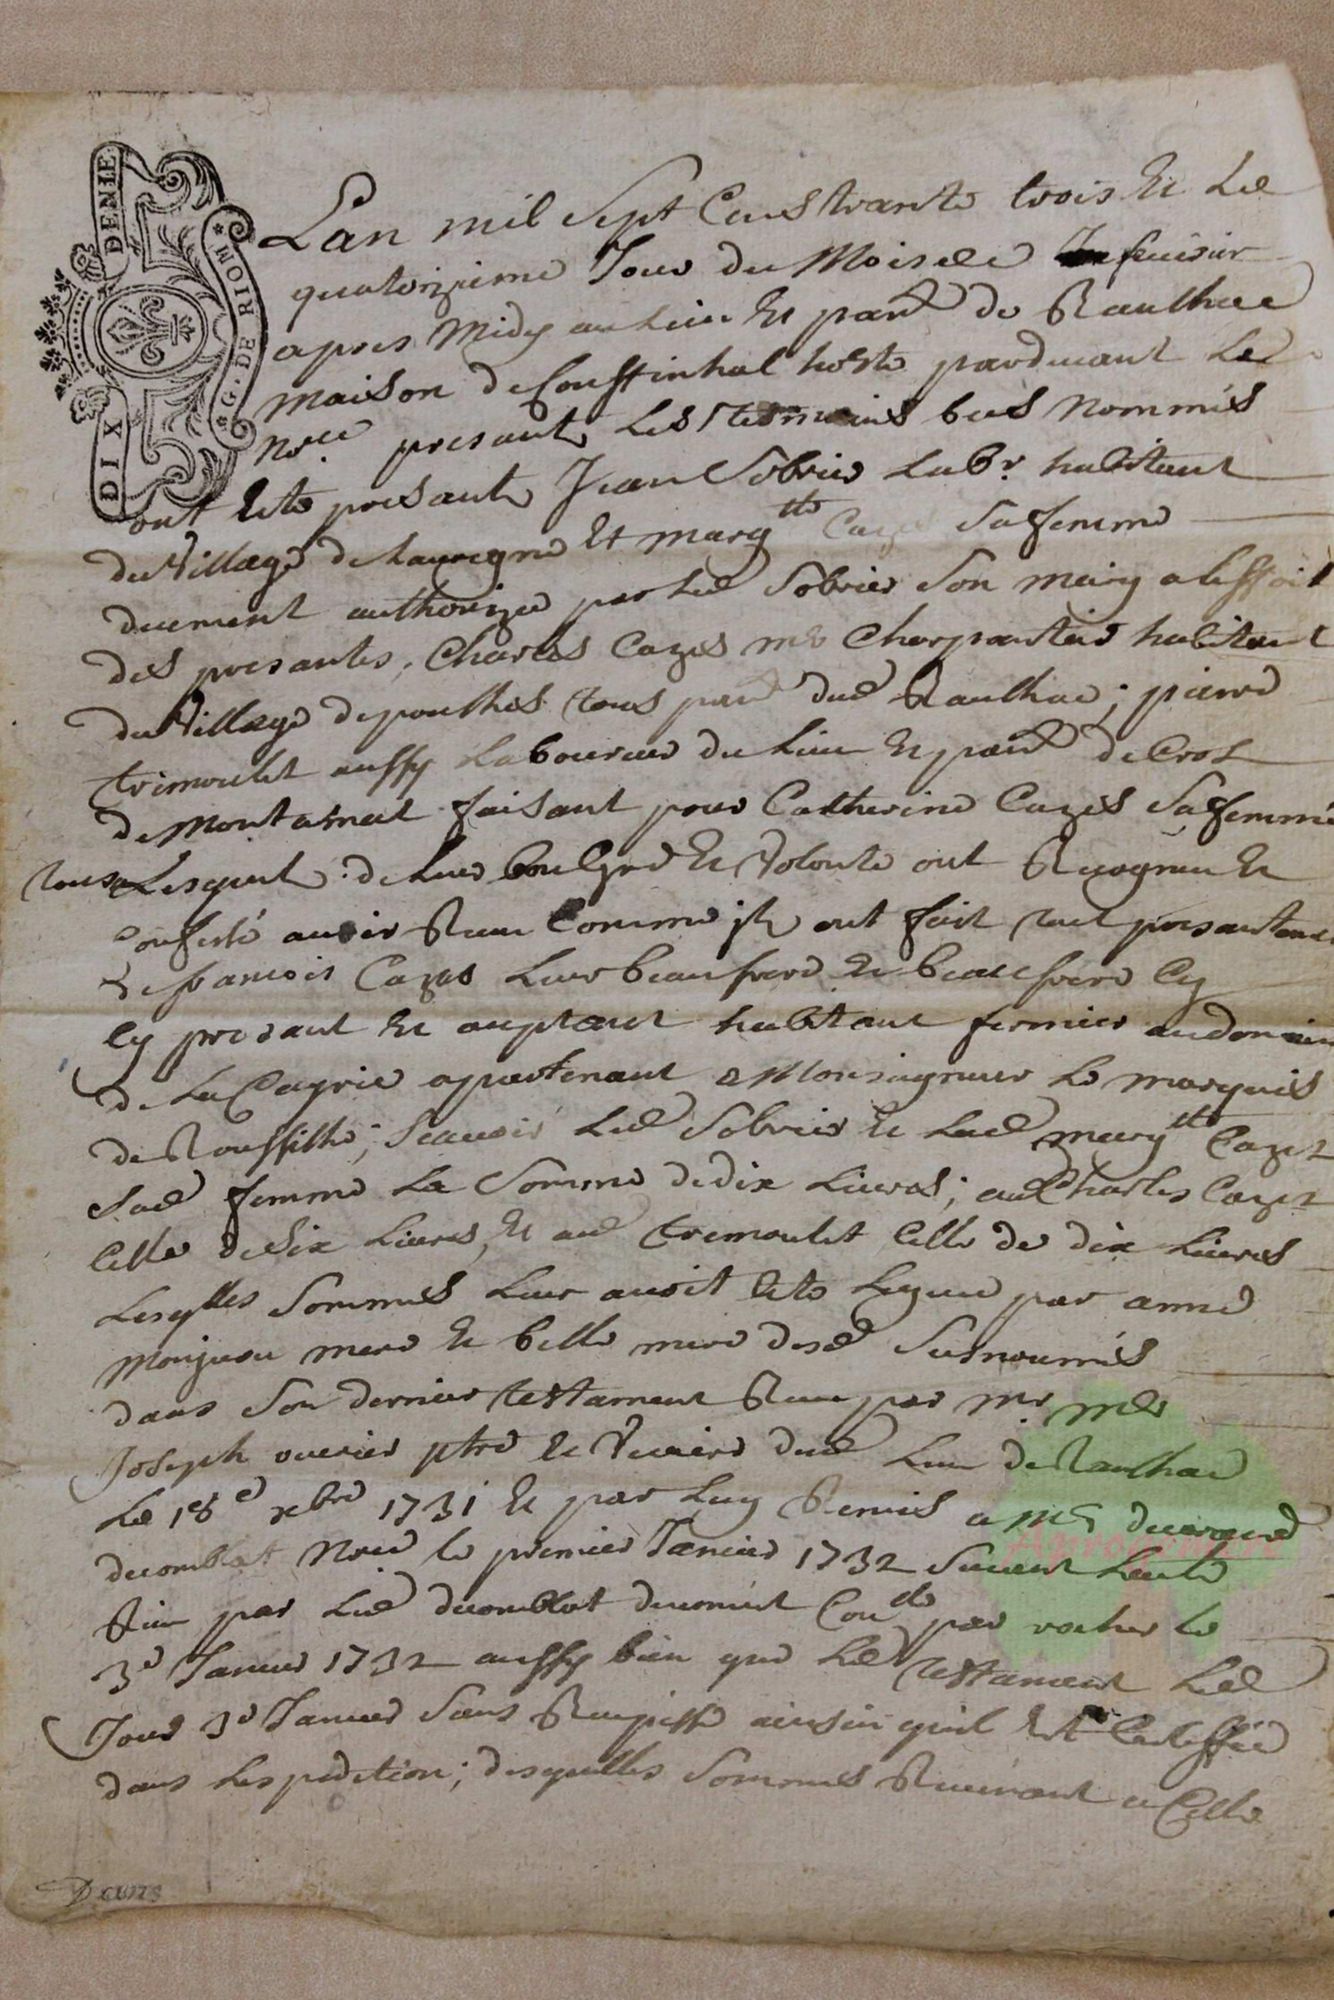 DIX DENIE
G. DE RIOM
Lan mil sept Cens trante trois Et Le
quatorzieme Jour du Mois de feuvrier
apres Midy au Lieu Et parr de Raulhac
maison de Coustinhal hoste pardevant Le
Nore presants Les Temoins bas Nommés
ont Este presants Jean Sobrier Labr habitant
du Village de Et margtte Cazes Sa femme
duement authorizee par Led Sobrier Son mary a leffait
des presantes, Charles Cazes me Charpantier habitant
du Village de pouthes tous parr dud Raulhac; pierre
trimoulet aussy Laboureur du Lieu Et parr de Cros
de Montamat faisant pour Catherine Cazes Sa femme
tous Lesquels de Leur bon Gred Et Volonte ont Recogneu Et
confessé avoir Receu Comme jls ont fait tout presantem
De francois Cazes Leur beaufrere Et beaufrere Cy
Cy presant Et aceptant habitant fermier au domaine
de La Cayrie apartenant a Monsiegneur Le marquis
de Roussilhe; Scauoir Led Sobrier Et Lad margtte Cazes
Sad femme La Somme de dix Liures; aud Charles Cazes
Celle de Six Liures, Et aud tremoulet Celle de dix Liures
Lesqlles Sommes Leur auoit Este Leguee par anne
Monjou mere Et belle mere desd Surnommés
dans Son dernier testament Receu par Mr Me
Joseph ouerier ptre Et Vicaire dud Lieu de Raulhac
Le 18e xbre 1731 Et par Luy Remis a Me
ducomblat Nore le premier Januier 1732 Suiuant Lacte
Receu par Led ducomblat duement Conlle par rocher le
3e Januier 1732 aussy bien que Led testament Led
Jour 3e Januier Sous ainsin quil Est
dans Lespedition; desquelles Sommes Reuenant a Celle